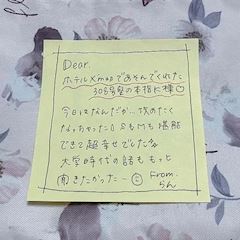 Dear.
ホテルXmasであそんでくれた
308号室の本指に棟♡
今日はなんだか…攻めたく
なっちゃった!! SもMも堪能
できて超幸せでした
大学時代の話ももっと
聞きたかったー
From.
らん